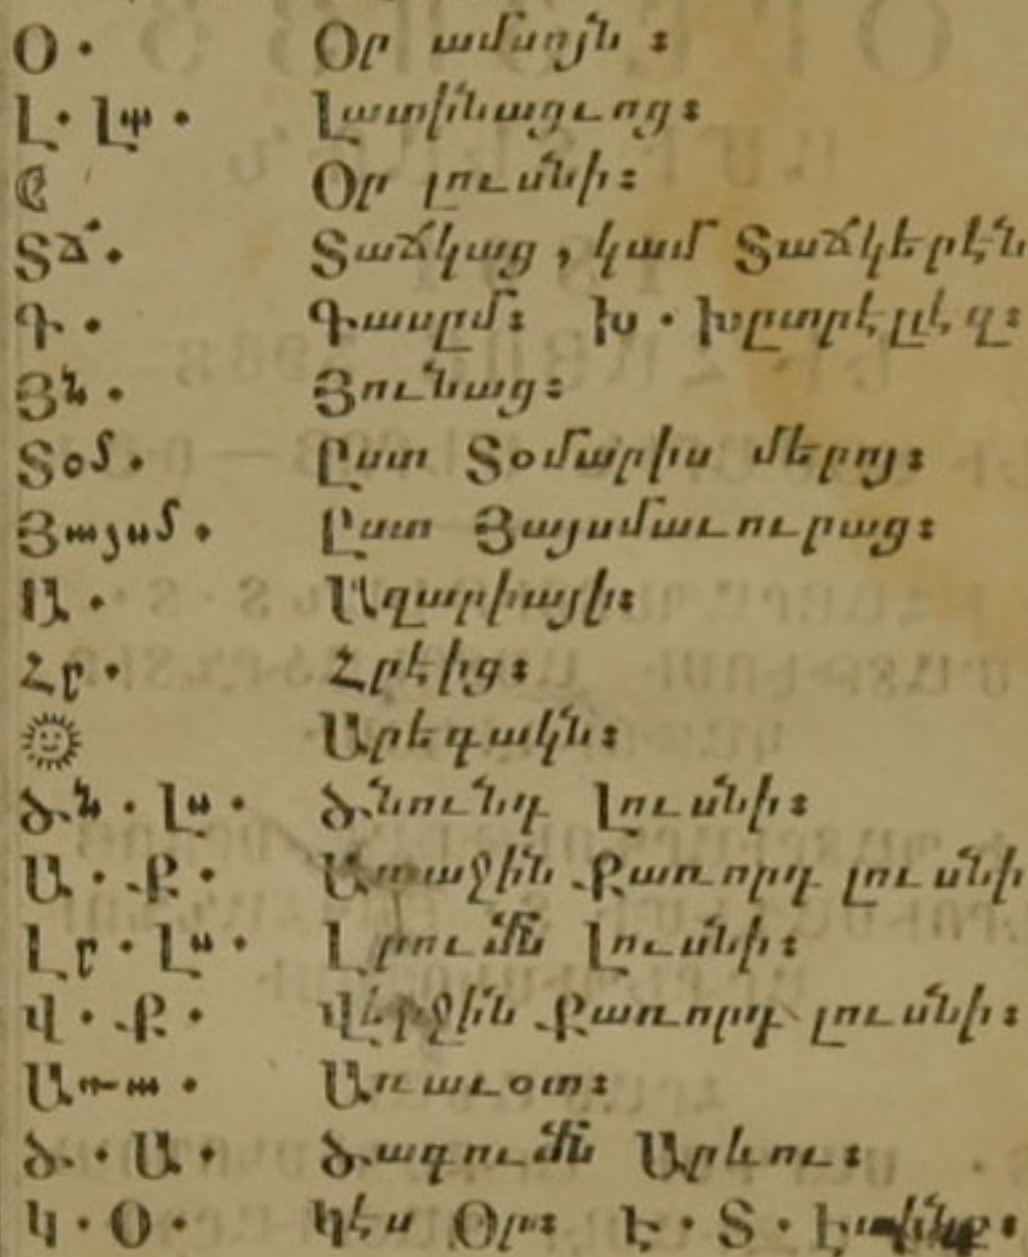 Օ. Օր ամսոյն ։
Լ. Լտ. Լատինացւոց։
☾ Օր լուսնի։
Տճ. Տաճկաց , կամ Տաճկերէն
Գ. Գասըմ։ Խ. Խըտրէլլէզ։
Յն. Յունաց։
Տօմ. Ըստ Տօմարիս մերոյ։
Յայսմ. Ըստ Յայսմաւուրաց։
Ա. Ազարիայի։
Հր. Հրէից։
Արեգակն։
Ծն. Լս. Ծնունդ Լուսնի։
Ա. Ք. Առաջին Քառորդ լուսնի
Լր. Լս. Լրումն Լուսնի։
Վ. Ք. Վերջին Քառորդ լուսնի։
Առտ. Առաւօտ։
Ծ. Ա. Ծագումն Արևու։
Կ. Օ. Կէս Օր։ Է. Տ.